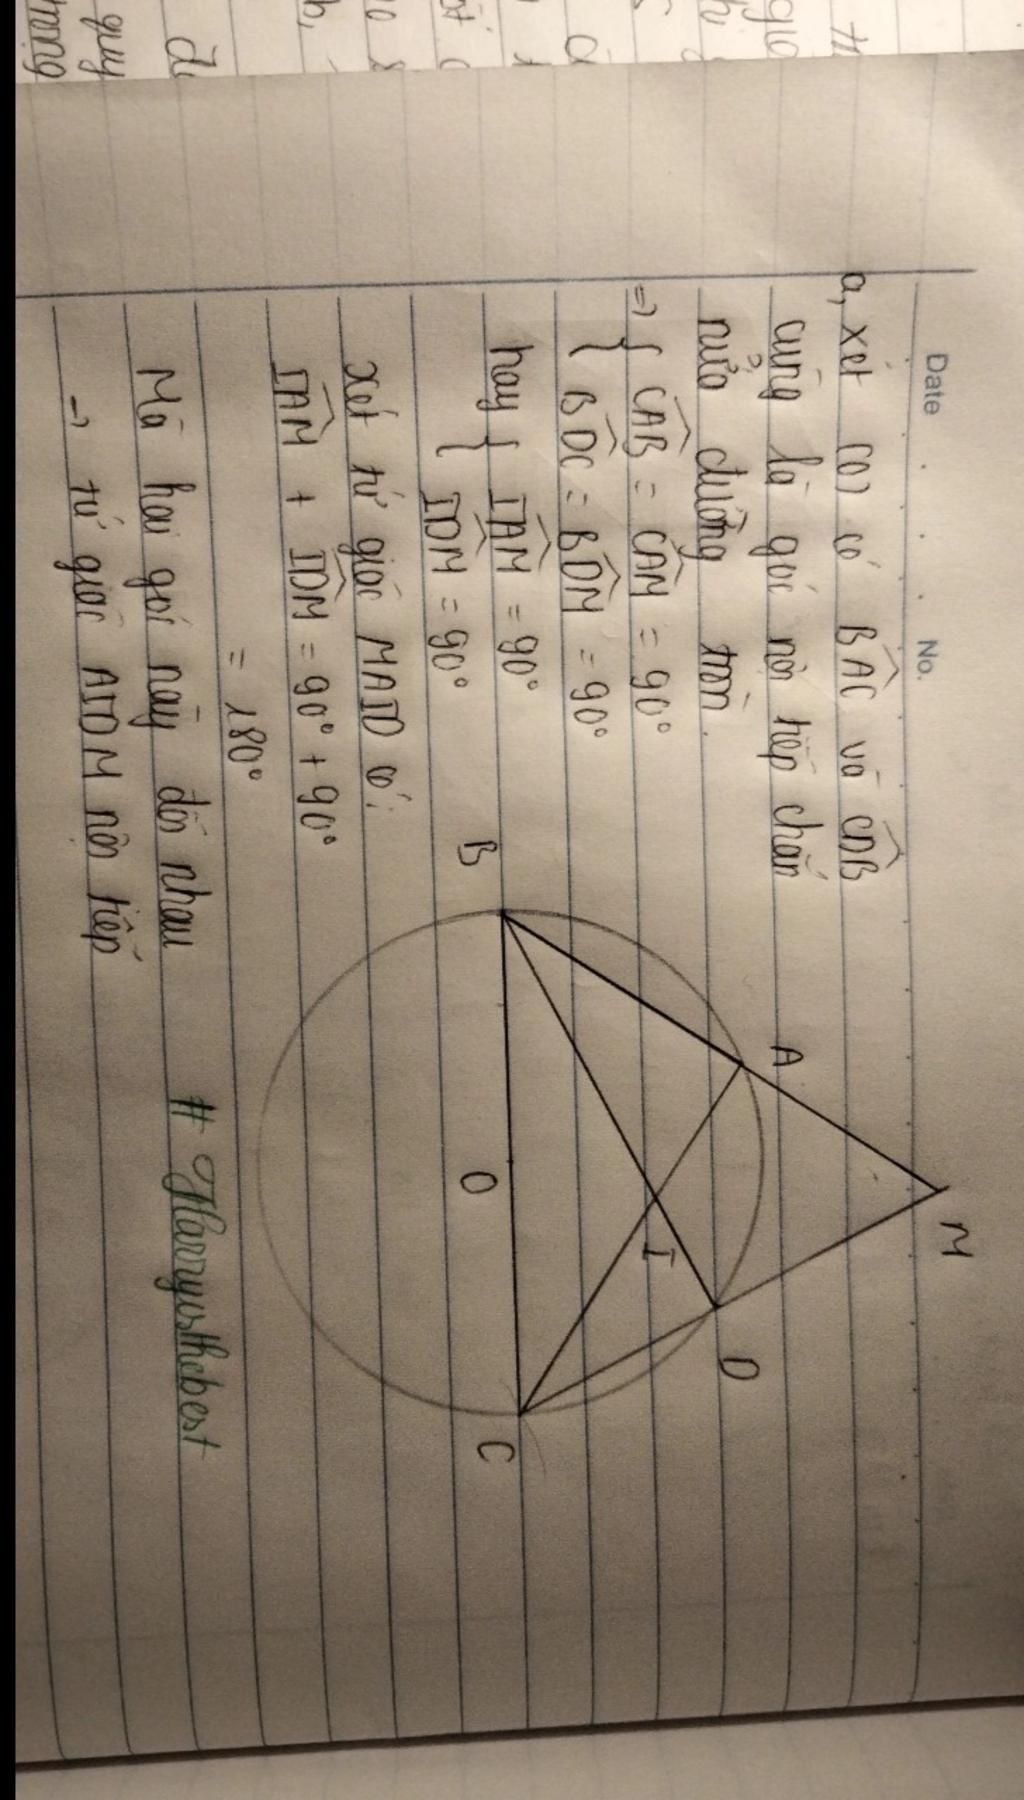 Date
No.
a, xét (O) có BAC và CDB
cùng là góc nội tiếp chắn
nửa đường tròn.
=> { CAB = CAM = 90°
{ BDC = BDM = 90°
hay { IAM = 90°
{ IDM = 90°
xét tứ giác MAID có:
IAM + IDM = 90° + 90°
= 180°
Mà hai góc này đối nhau
→ tứ giác AIDM nội tiếp
B
A
M
O
I
D
C
# Harryisthebest